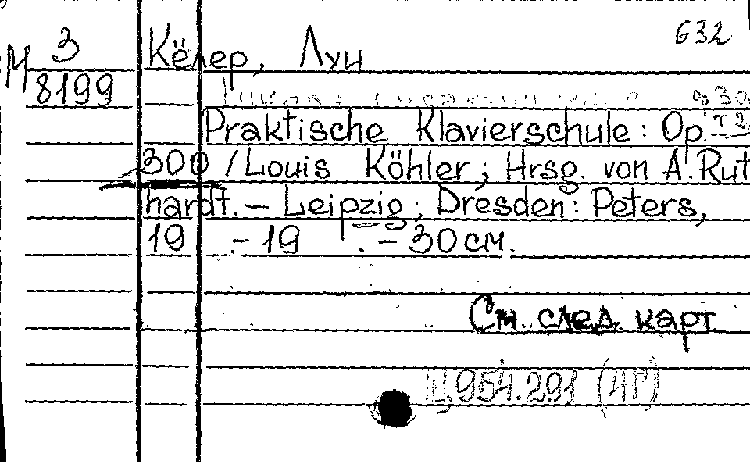 632
М 3
8199
Кёлер, Луи
Praktische Klavierschule: Op.
300 / Louis Köhler; Hrsg. von A. Rut
hardt. – Leipzig; Dresden: Peters,
19 . – 19 . – 30 см.
См. след. карт
Ц954.291 (4г)